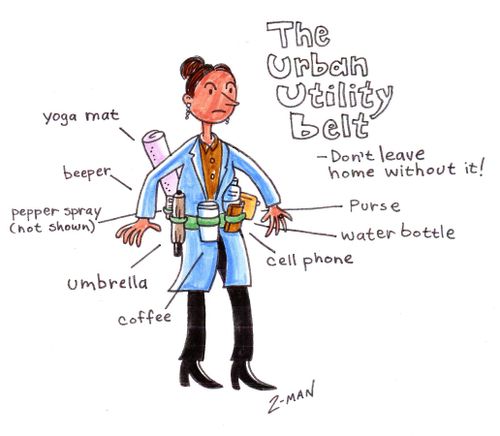 The
Urban
Utility
belt
-Don't leave
home without it!
yoga mat
beeper
pepper spray
(not shown)
umbrella
coffee
Purse
water bottle
cell phone
Z-MAN